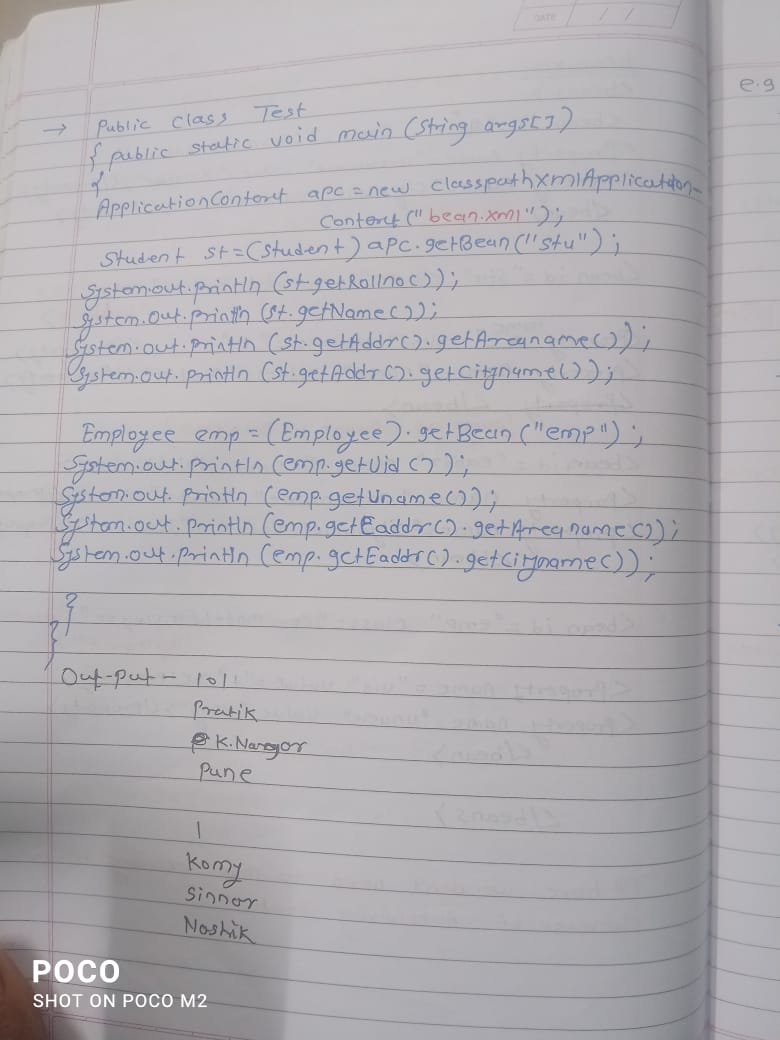 DATE / /
e.g
→ Public class Test
{ public static void main (String args[])
{
ApplicationContext apc = new classpathXmlApplication-
Context ("bean.xml");
Student st = (Student) apc.getBean ("stu");
System.out.println (st.getRollno());
System.out.println (st.getName());
System.out.println (st.getAddr().getAreaname());
System.out.println (st.getAddr().getCityname());
Employee emp = (Employee).getBean ("emp");
System.out.println (emp.getUid());
System.out.println (emp.getUname());
System.out.println (emp.getEaddr().getAreaname());
System.out.println (emp.getEaddr().getCityname());
}
}
Out-put - 101
Pratik
K.Nangor
Pune
1
Komy
Sinnar
Nashik
POCO
SHOT ON POCO M2